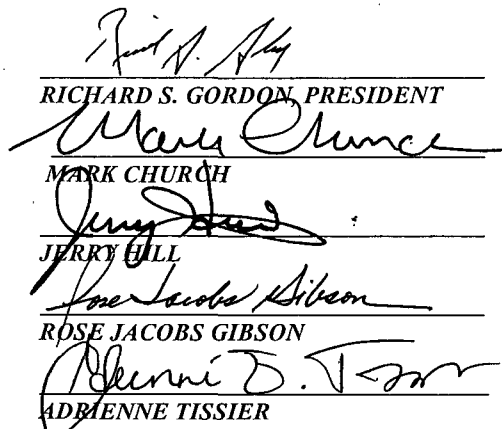 Richard S. Gordon
RICHARD S. GORDON, PRESIDENT
Mark Church
MARK CHURCH
Jerry Hill
JERRY HILL
Rose Jacobs Gibson
ROSE JACOBS GIBSON
Adrienne J. Tissier
ADRIENNE TISSIER